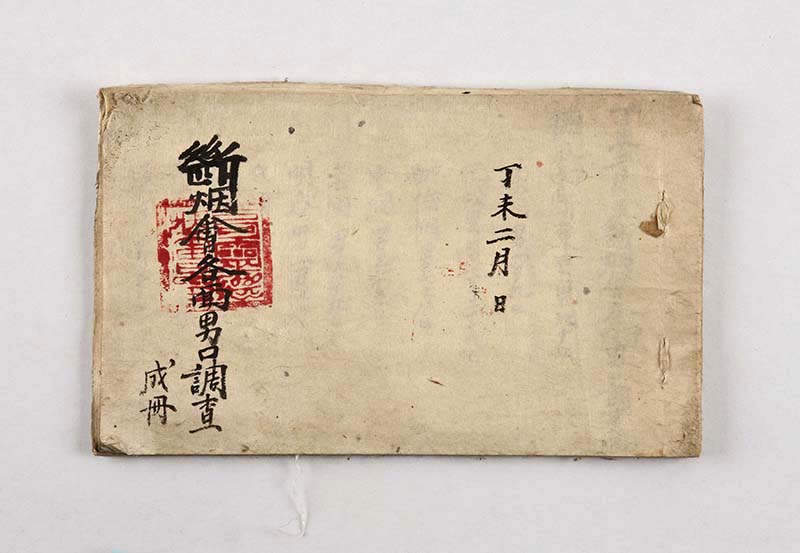 丁未二月 日
斷烟會各面男口調查
成冊